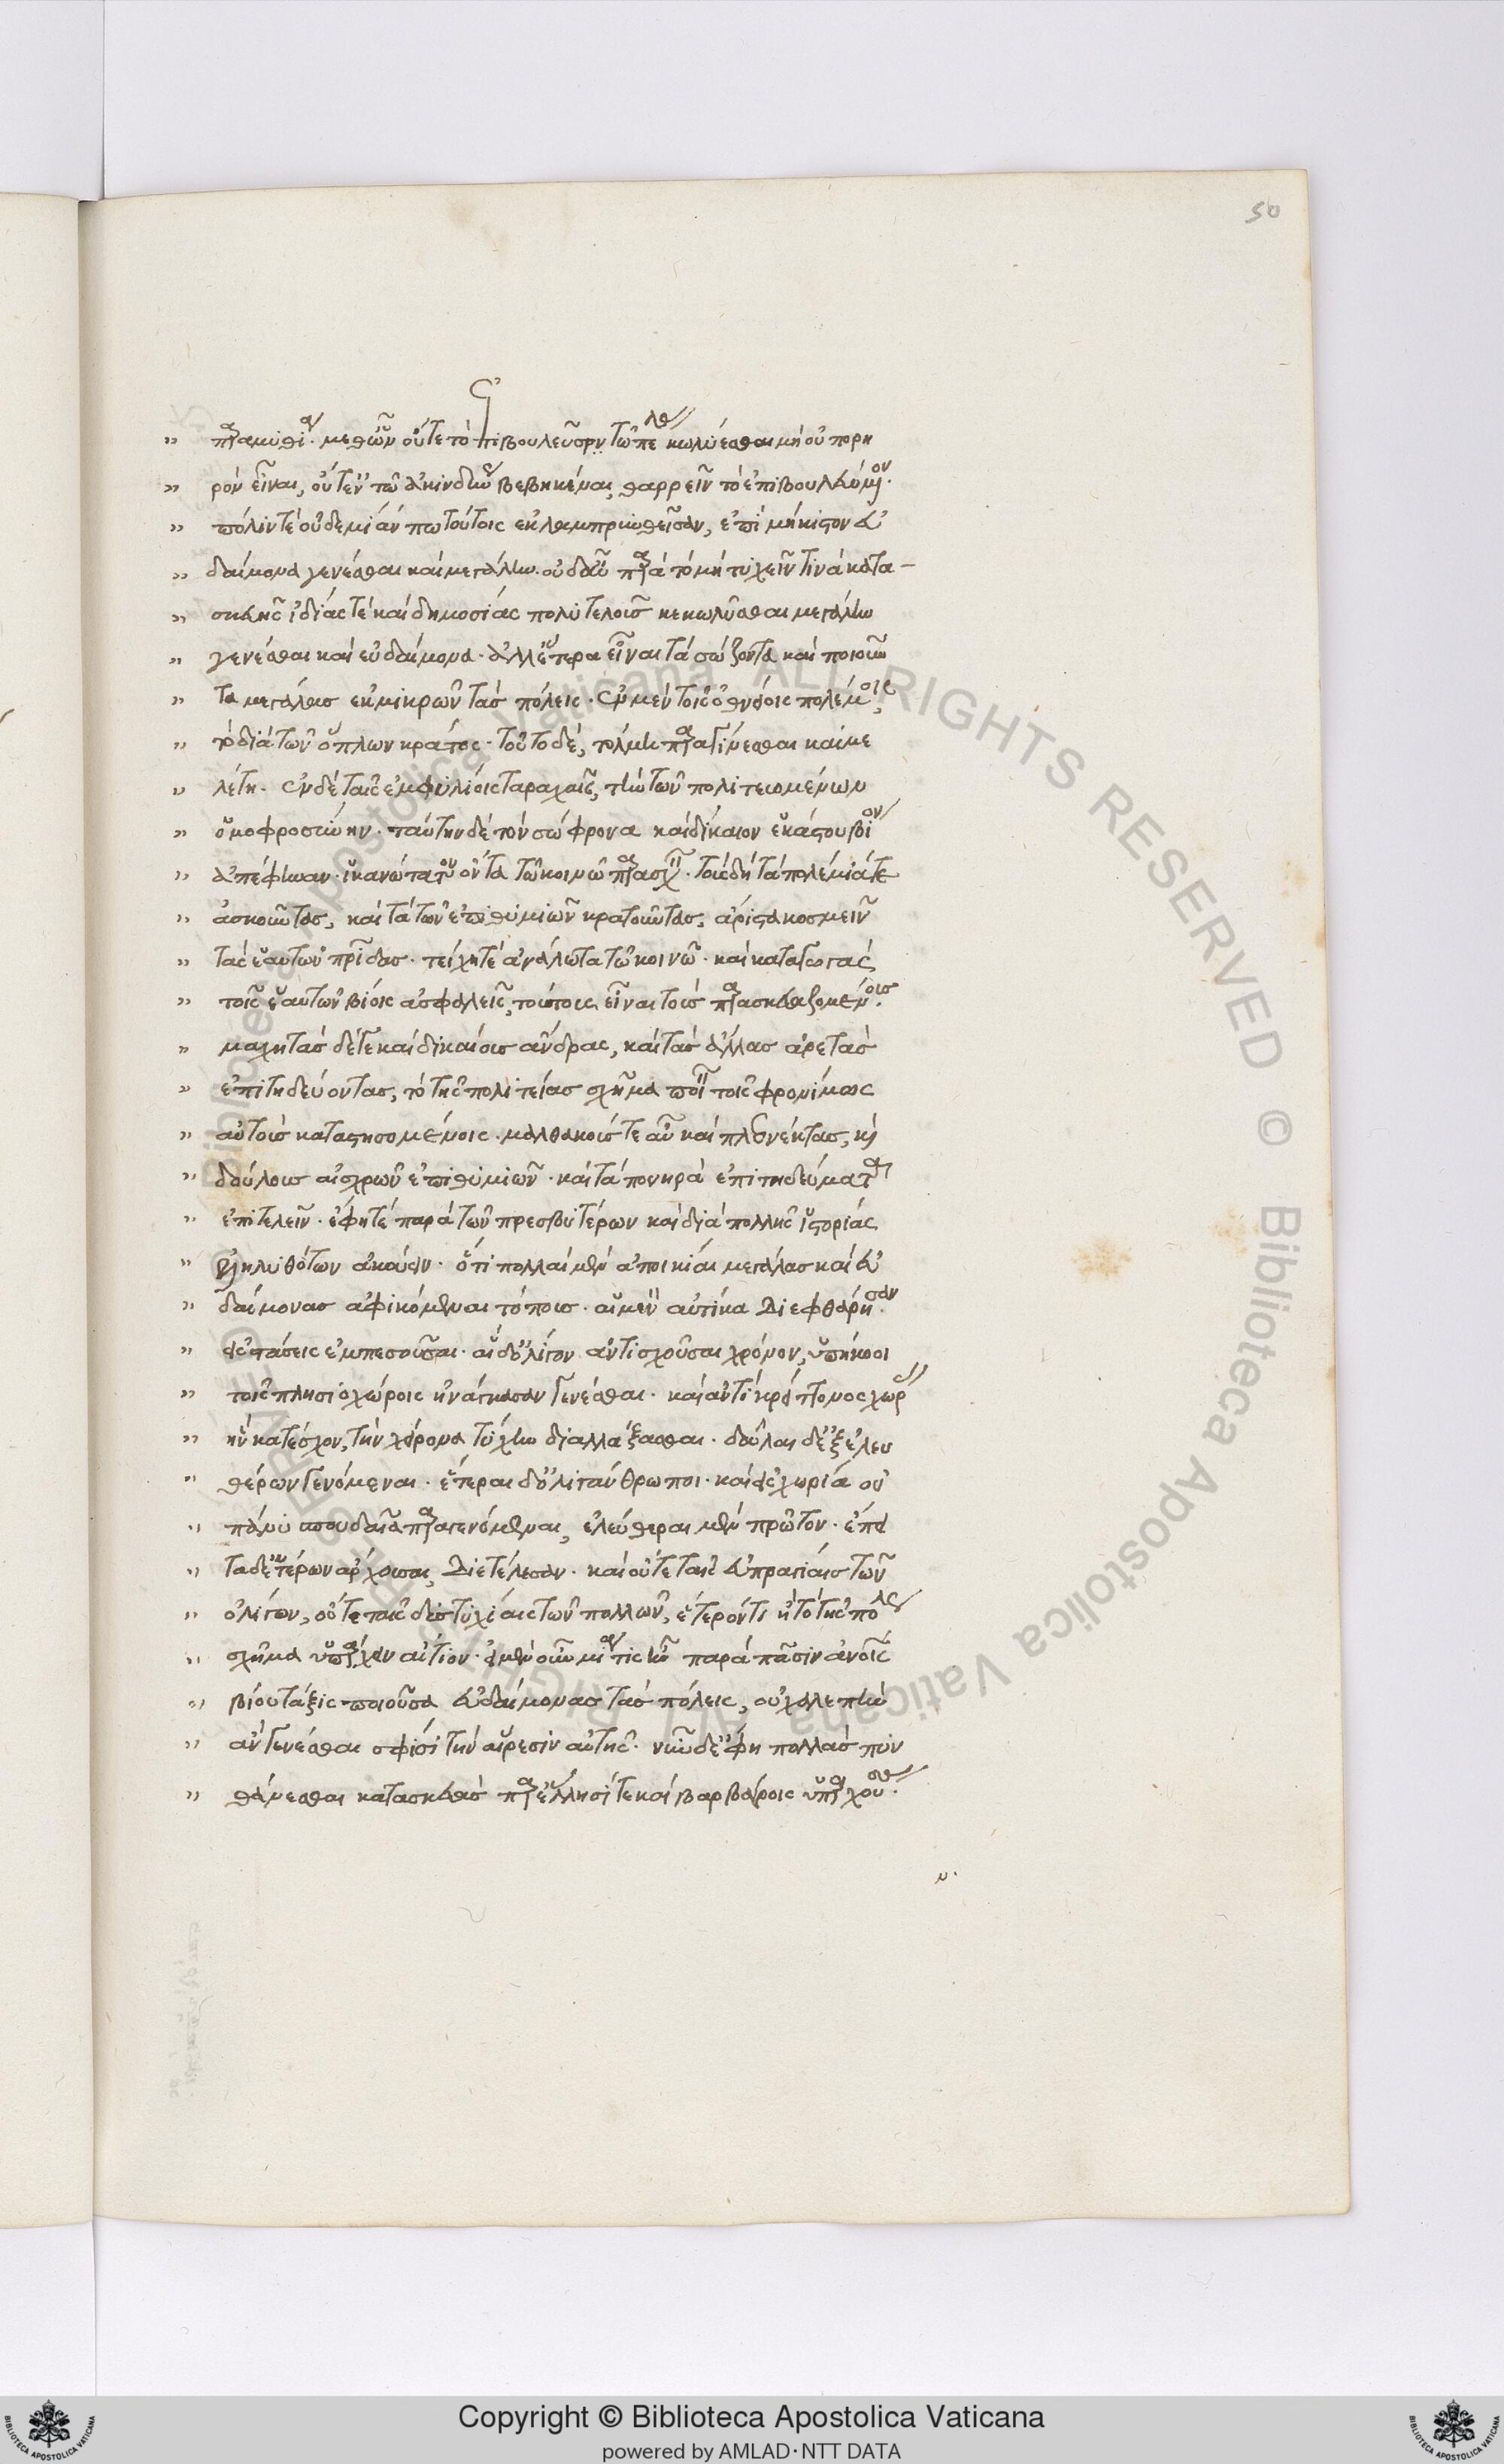 50
” παραμυθίαν. μεθῶν οὔτε τὸ ἐπιβουλεῦον τῶ πε κωλύεσθαι μὴ οὐ πονη
” ρὸν εἶναι, οὔτ' ἐν τῶ ἀκινδύνω βεβηκέναι, θαρρεῖν τὸ ἐπιβουλευόμενον.
” πόλίν τε οὐδεμίαν πω τούτοις ἐκλαμπρυνθεῖσαν, ἐπὶ μήκιστον εὐ
” δαίμονα γενέσθαι καὶ μεγάλην. οὐδ' αὖ παρὰ τὸ μὴ τυχεῖν τινὰ κατα-
” σκευῆς ἰδίας τὲ καὶ δημοσίας πολυτελοῦς κεκωλῦσθαι μεγάλην
” γενέσθαι καὶ εὐδαίμονα. ἀλλ' ἕτερα εἶναι τὰ σώζοντα καὶ ποιοῦν
” τα μεγάλας ἐκ μικρῶν τὰς πόλεις. ἐν μὲν τοῖς ὀθνείοις πολέμοις,
” τὸ διὰ τῶν ὅπλων κράτος. τοῦτο δέ, τόλμη παραγίνεσθαι καὶ με
” λέτη. ἐν δὲ ταῖς ἐμφυλίοις ταραχαῖς, τὴν τῶν πολιτευομένων
” ὁμοφροσύνην. ταύτην δὲ τὸν σώφρονα καὶ δίκαιον ἑκάστου βίον
” ἀπέφηναν. ἱκανώτατον ὄντα τῶ κοινῶ παρασχεῖν. τοὺς δὴ τὰ πολέμιά τε
” ἀσκοῦντας, καὶ τὰ τῶν ἐπιθυμιῶν κρατοῦντας, ἄριστα κοσμεῖν
” τὰς ἑαυτῶν πατρίδας. τείχη τὲ ἀνάλωτα τῶ κοινῶ. καὶ καταγωγὰς
” τοῖς ἑαυτῶν βίοις ἀσφαλεῖς, τούτους εἶναι τοὺς παρασκευαζομένους.
” μαχητὰς δέ γε καὶ δικαίους ἄνδρας, καὶ τὰς ἄλλας ἀρετὰς
” ἐπιτηδεύοντας, τὸ τῆς πολιτείας σχῆμα ποιεῖν τοῖς φρονίμως
” αὐτοὺς καταστησομένοις. μαλθακούς τε αὖ καὶ πλεονέκτας, καὶ
” δούλους αἰσχρῶν ἐπιθυμιῶν. καὶ τὰ πονηρὰ ἐπιτηδεύματα
” ἐπιτελεῖν. ἔφη τὲ παρὰ τῶν πρεσβυτέρων καὶ διὰ πολλῆς ἱστορίας
” ἐληλυθότων ἀκούειν. ὅτι πολλαὶ μὲν ἀποικίαι μεγάλας καὶ εὐ
” δαίμονας ἀφικόμεναι τόπους. αἱ μὲν αὐτίκα διεφθάρησαν.
” εἰς στάσεις ἐμπεσοῦσαι. αἱ δ' ὀλίγον ἀντισχοῦσαι χρόνον, ὑπήκοοι
” τοῖς πλησιοχώροις ἠνάγκασαν γενέσθαι. καὶ ἀντὶ κρείττονος χώρας
” ἣν κατέσχον, τὴν χείρονα τύχην διαλλάξασθαι. δοῦλαι δ' ἐξ ἐλευ
” θέρων γενόμεναι. ἕτεραι δ' ὀλιγάνθρωποι. καὶ εἰς χωρία οὐ
” πάνυ σπουδαῖα παραγενόμεναι, ἐλεύθεραι μὲν πρῶτον. ἔπει
” τα δ' ἑτέρων ἄρχουσαι, διετέλεσαν. καὶ οὔτε ταῖς εὐπραγίαις τῶν
” ὀλίγων, οὔτε ταῖς δυστυχίαις τῶν πολλῶν, ἕτερόν τι ἢ τὸ τῆς πόλεως
” σχῆμα ὑπάρχειν αἴτιον. εἰ μὲν οὖν μία τις ἦν παρὰ πᾶσιν ἀνθρώποις
” βίου τάξις ποιοῦσα εὐδαίμονας τὰς πόλεις, οὐ χαλεπὴν
” ἂν γενέσθαι σφίσι τὴν αἵρεσιν αὐτῆς. νῦν δ' ἔφη πολλὰς πυν
” θάνεσθαι κατασκευὰς παρ' ἕλλησί τε καὶ βαρβάροις ὑπαρχούσας.